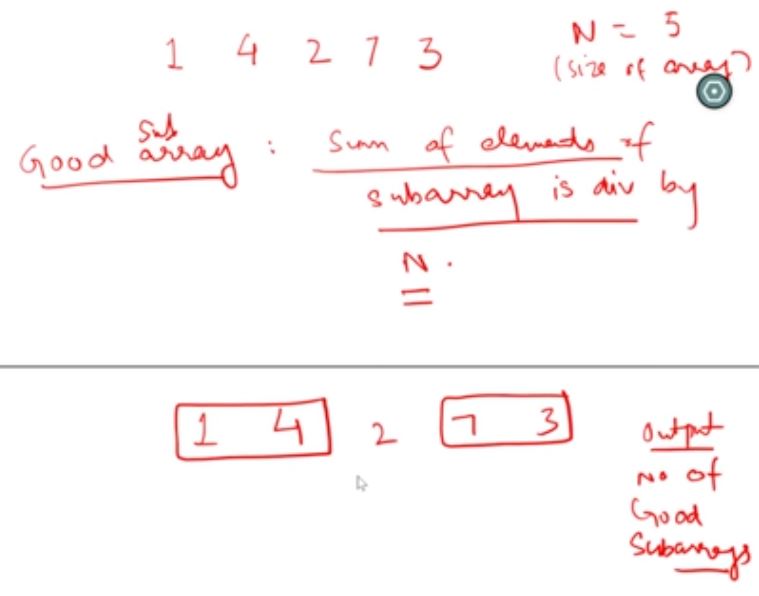 1 4 2 7 3
N = 5
(size of array)
Good sub array : Sum of elements of
subarray is div by
N.
1 4 2 7 3
Output
No of
Good
Subarrays